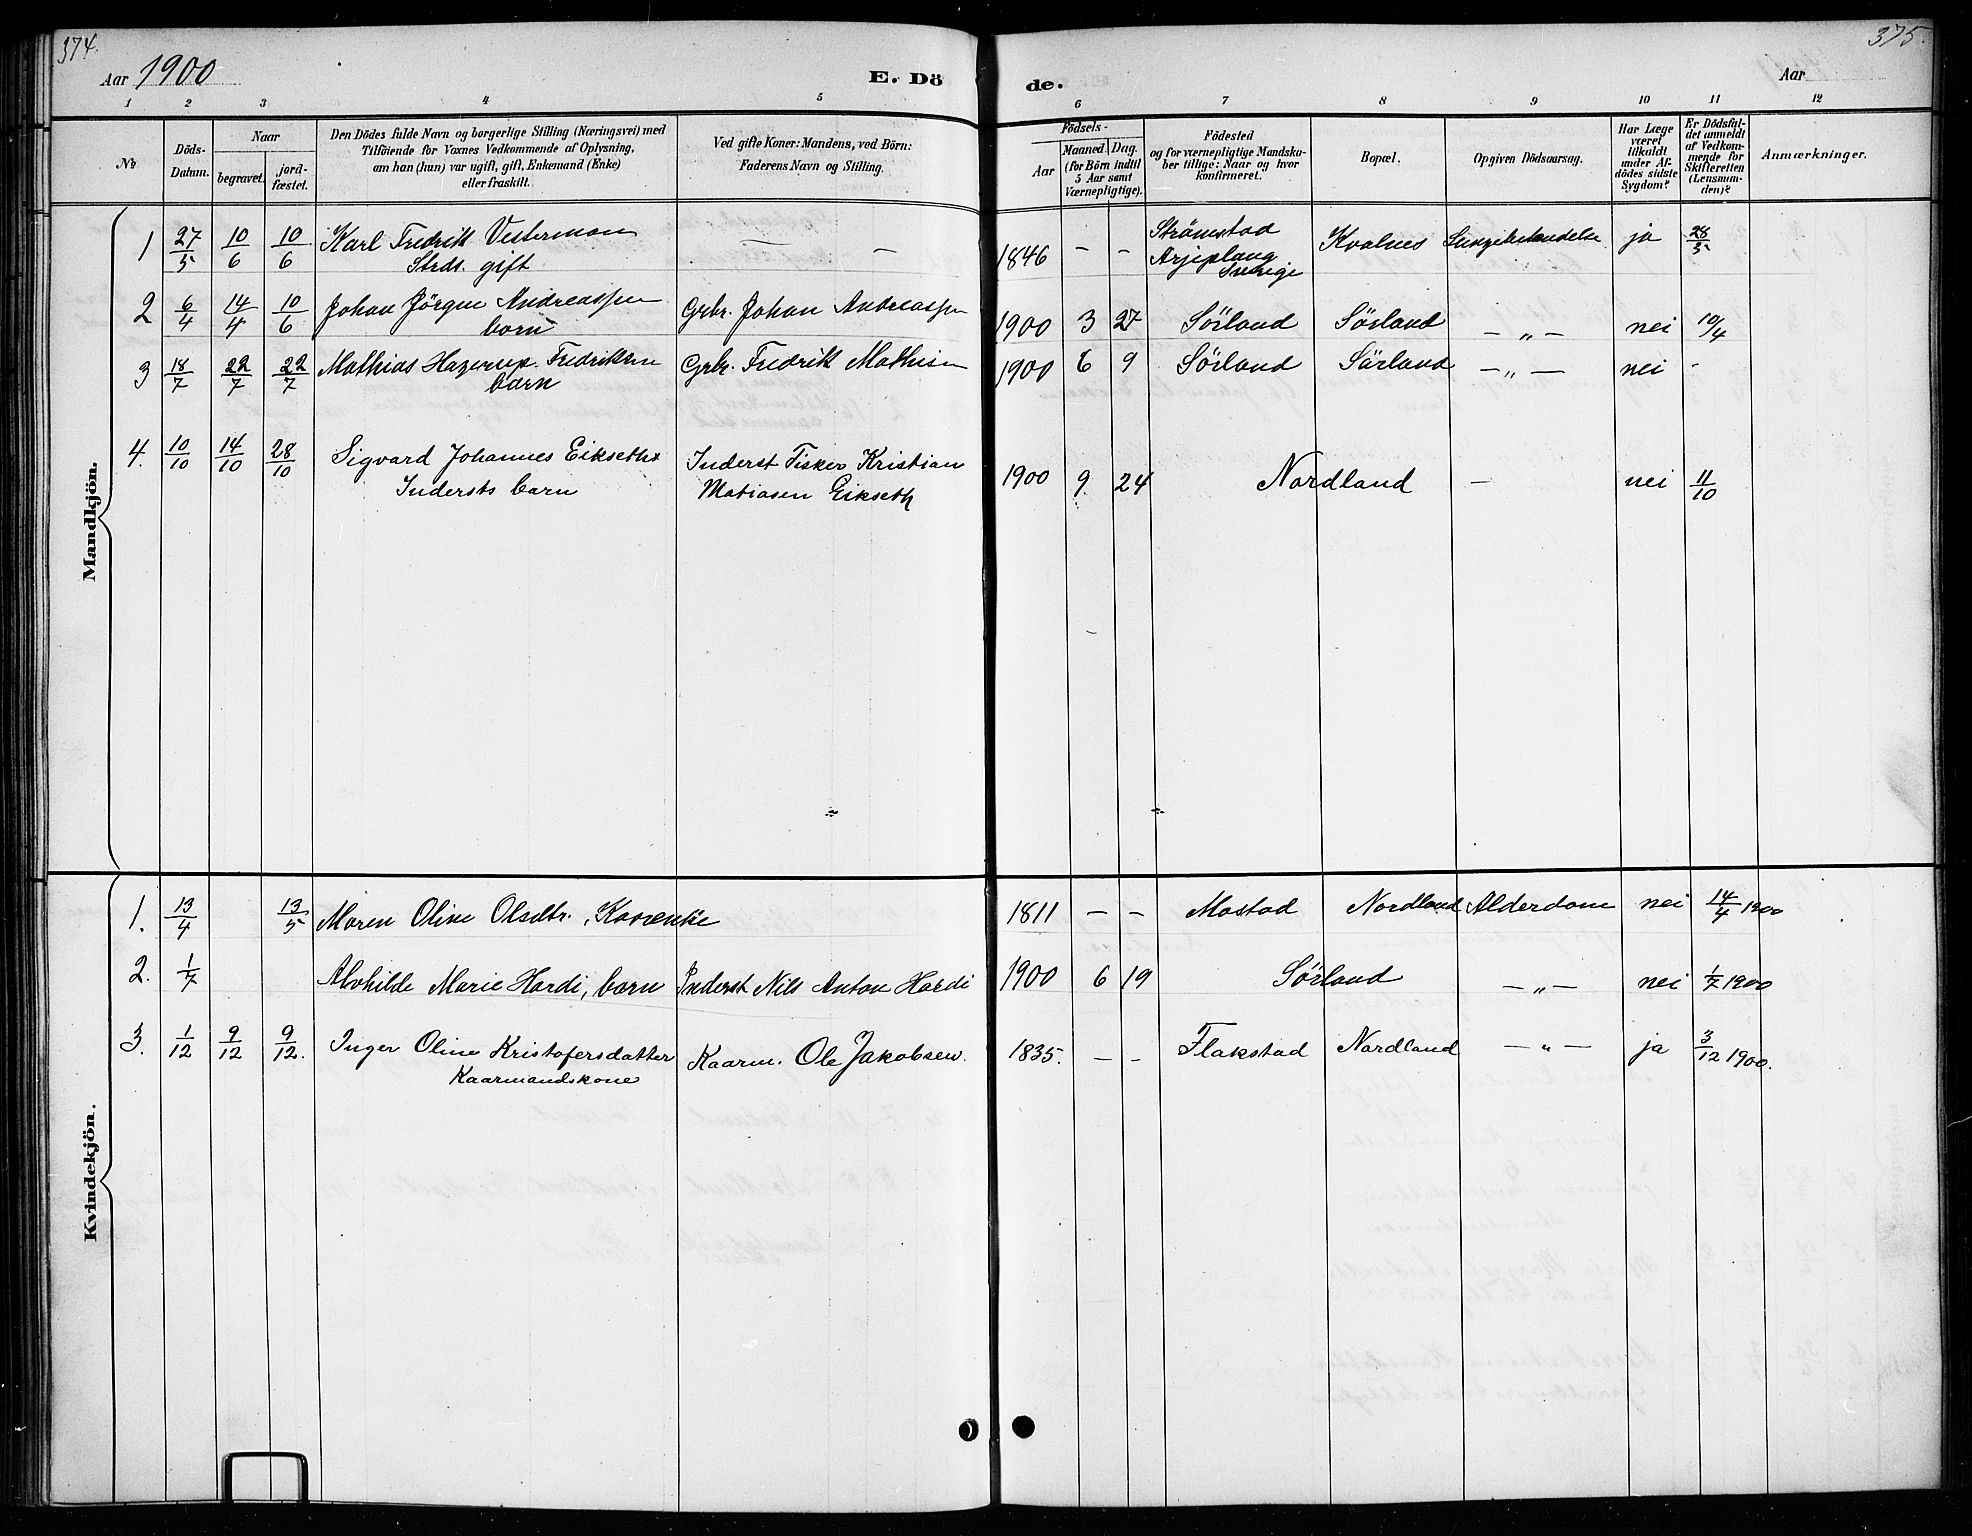 374.
375.
Aar 1900
E. Dö
de.
Aar
1 2 3 4 5 6 7 8 9 10 11 12
No
Döds-
Datum.
Naar
begravet.
jord-
fæstet.
Den Dödes fulde Navn og borgerlige Stilling (Næringsvei) med
Tilföiende for Voxnes Vedkommende af Oplysning,
om han (hun) var ugift, gift, Enkemand (Enke)
eller fraskilt.
Ved gifte Koner: Mandens, ved Börn:
Faderens Navn og Stilling.
Födsels-
Aar
Maaned
Dag.
(for Börn indtil
5 Aar samt
Værnepligtige).
Födested
og for værnepligtige Mandska-
ber tillige: Naar og hvor
konfirmeret.
Bopæl.
Opgiven Dödsaarsag.
Har Læge
været
tilkaldt
under Af-
dödes sidste
Sygdom?
Er Dödsfal-
det anmeldt
af Vedkom-
mende for
Skifteretten
(Lensman-
den)?
Anmærkninger.
Mandkjön.
1 27/5 10/6 10/6 Karl Fredrik Vesterman — — 1846 — — Strömstad Kvalnes Lungebetændelse ja 28/5
Strds. gift Arjeplaug
Sverige
2 6/4 14/4 10/6 Johan Jörgen Andreassen Grbr. Johan Andreassen 1900 3 27 Sörland Sörland — „ — nei 10/4
barn
3 18/7 22/7 22/7 Mathias Hagerup Fredriksen Grbr. Fredrik Mathisen 1900 6 9 Sörland Sörland — „ — nei -
barn
4. 10/10 14/10 28/10 Sigvard Johannes Eikseth Inderst Fisker Kristian 1900 9. 24 Nordland — nei 11/10
Indersts barn Matiasen Eikseth
Kvindekjön.
1. 13/4 13/5 Maren Oline Olsdtr., Kaarenke 1811 — — Mostad Nordland Alderdom nei 14/4 1900
2. 1/7 Alvhilde Marie Hardi, barn Inderst Nils Anton Hardi 1900 6 19 Sörland — „ — nei 1/7 1900
3. 1/12 9/12 9/12. Inger Oline Kristofersdatter Kaarm. Ole Jakobsen. 1835. — — Flakstad Nordland — „ — ja 3/12 1900.
Kaarmandskone